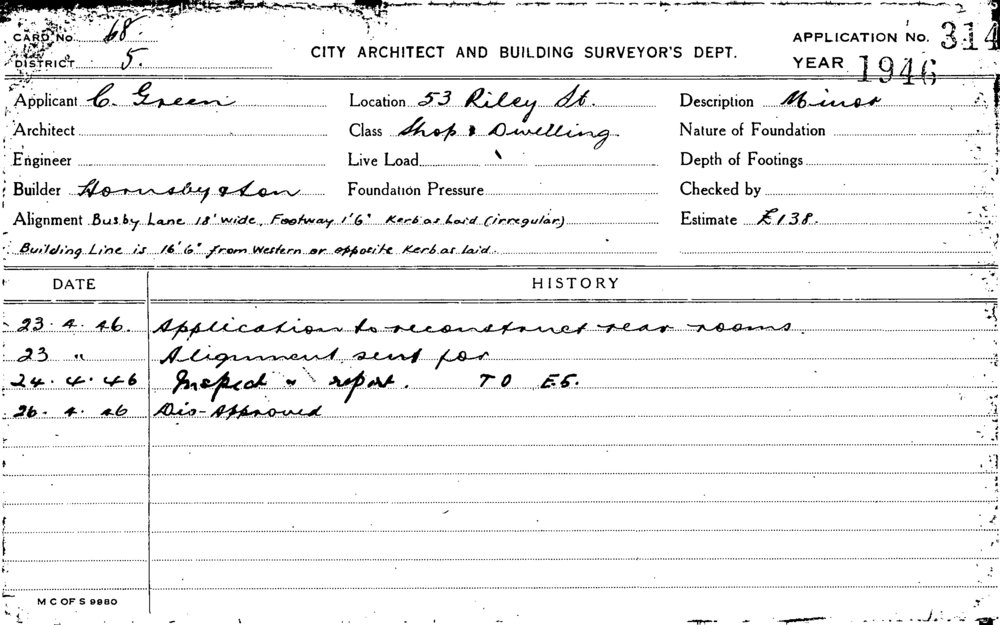 CARD No. 68.
DISTRICT 5.
CITY ARCHITECT AND BUILDING SURVEYOR'S DEPT.
APPLICATION No. 314
YEAR 1946
Applicant C. Green Location 53 Riley St. Description Minor
Architect Class Shop & Dwelling Nature of Foundation
Engineer Live Load Depth of Footings
Builder Hornsby & Son Foundation Pressure Checked by
Alignment Busby Lane 18' wide, Footway 1'6" Kerb as laid (irregular) Estimate £138.
Building Line is 16'6" from Western or opposite Kerb as laid.
DATE HISTORY
23.4.46. Application to reconstruct rear rooms
23 " Alignment sent for
24.4.46 Inspect & report. TO E.S.
26.4.46 Dis-Approved
M C OF S 9980